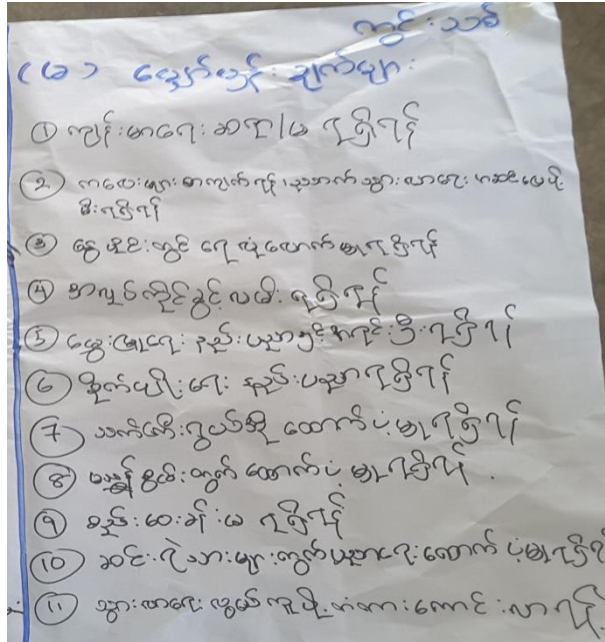 ကွင်းသစ်
(ခ) မျှော်မှန်းချက်များ
① ကျန်းမာရေး ဆရာ/မ ရရှိရန်
② ကလေးများ စာကျက်ရန် ပညာ သွားလာရေး အဆင်ပြေဖို့
မီးရရှိရန်
③ နွေရာသီတွင် ရေ လုံလောက်မှုရရှိရန်
④ အလုပ်ကိုင်ခွင့်လမ်းရရှိရန်
⑤ မွေးမြူရေး နည်းပညာနှင့်အရင်းအနှီးရရှိရန်
⑥ စိုက်ပျိုးရေး နည်းပညာရရှိရန်
⑦ သက်ကြီးရွယ်အို ထောက်ပံ့မှုရရှိရန်
⑧ မသန်စွမ်းတွက် ထောက်ပံ့မှုရရှိရန်.
⑨ စည်းဝေးခန်းမ ရရှိရန်
⑩ ဆင်းရဲသားများတွက်ပညာရေးထောက်ပံ့မှုရရှိရ
⑪ သွားလာရေးလွယ်ကူဖို့တံတားကောင်းလာရန်